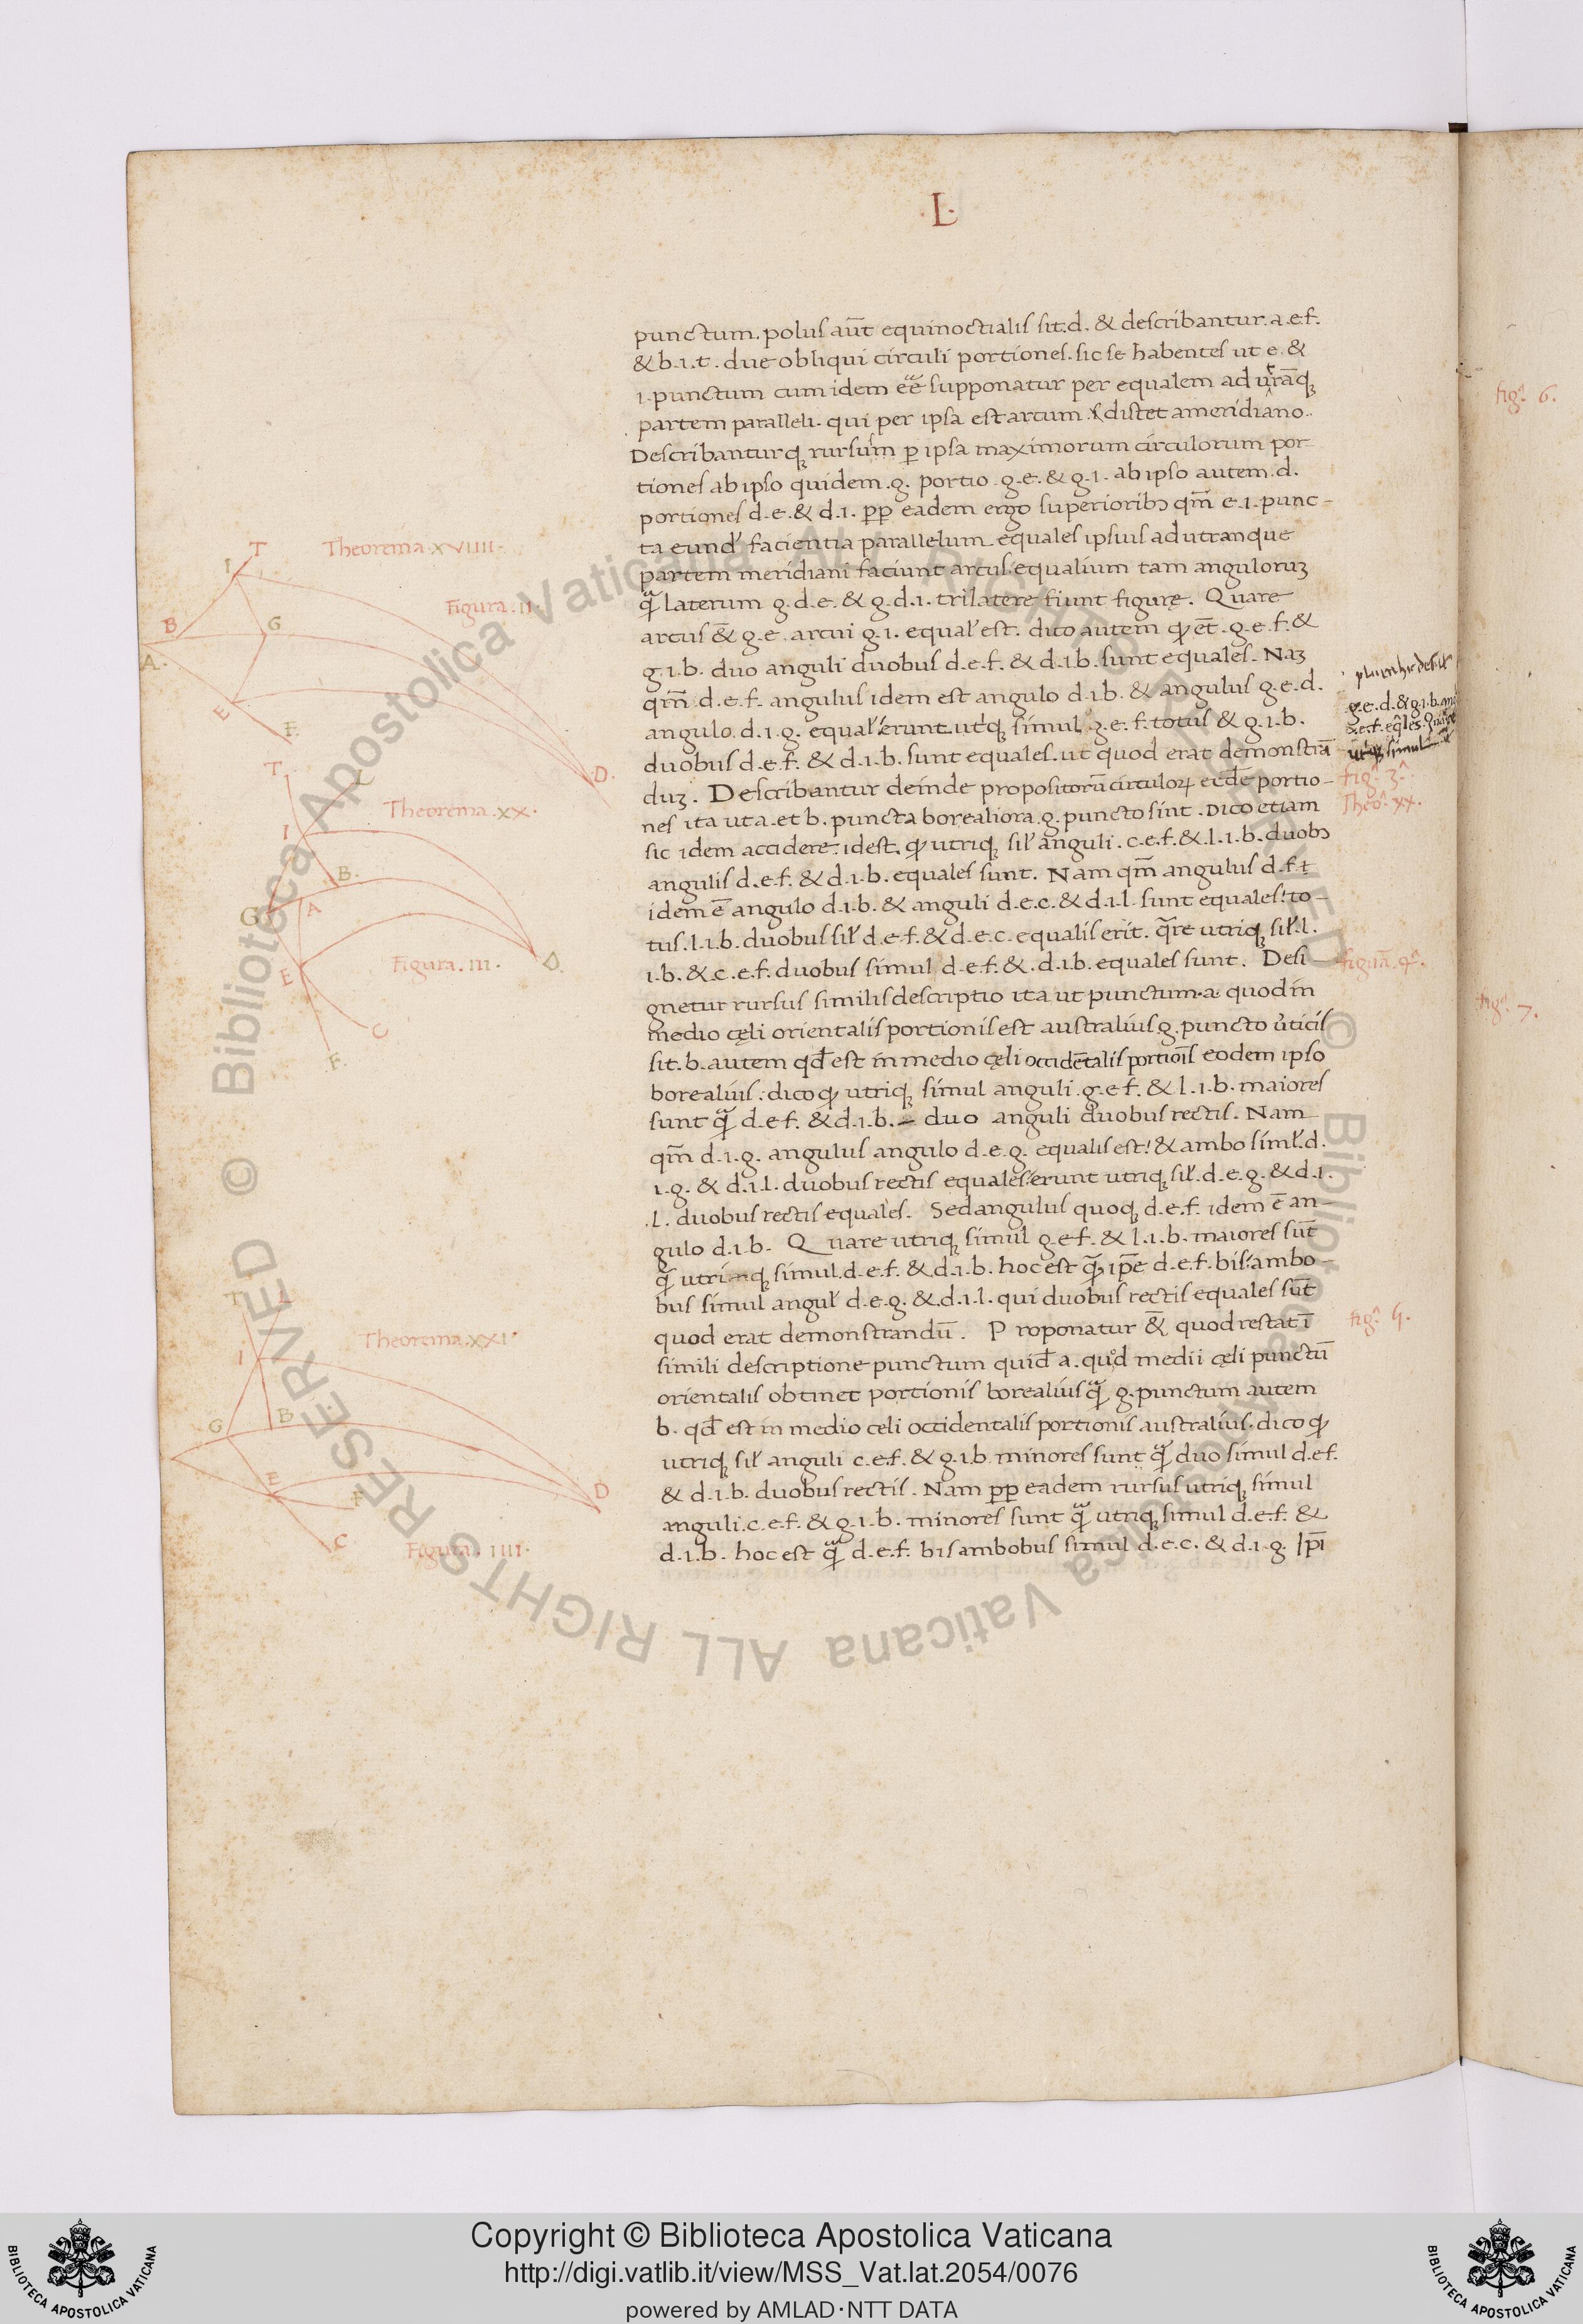 ·L·
punctum. polus aūt equinoctialis sit. d. & describantur. a. e. f.
& b. i. t. due obliqui circuli portiones. sic se habentes ut e. &
i. punctum cum idem eē supponatur per equalem ad utrāq₃
partem paralleli. qui per ipsa est arcum distet a meridiano.
Describanturq₃ rursum p̱ ipsa maximorum circulorum por-
tiones ab ipso quidem. g. portio. g. e. & g. i. ab ipso autem. d.
portiones d. e. & d. i. pp̄ eadem ergo superioribꝰ qm̄ e. i. punc-
ta eund' facientia parallelum equales ipsius ad utranque
partem meridiani faciunt arcus. equalium tam angulorum
q̄ laterum g. d. e. & g. d. i. trilatere fiunt figurę. Quare
arcus & g. e. arcui g. i. equał est. dico autem ꝙ et̄. g. e. f. &
g. i. b. duo anguli duobus d. e. f. & d. i. b. sunt equales. Naʒ
qm̄ d. e. f. angulus idem est angulo d. i. b. & angulus g. e. d.
angulo. d. i. g. equał. erunt utq₃ simul g. e. f. totus & g. i. b.
duobus d. e. f. & d. i. b. sunt equales. ut quod erat demonstrā
duʒ. Describantur deinde propositorū circuloꝝ ecd̄e portio-
nes ita ut a. et b. puncta borealiora. g. puncto sint. Dico etiam
sic idem accidere. idest. ꝙ utriq₃ sił anguli. c. e. f. & l. i. b. duobꝰ
angulis d. e. f. & d. i. b. equales sunt. Nam qm̄ angulus d. f. t
idem ē angulo d. i. b. & anguli d. e. c. & d. i. l. sunt equales: to-
tus. l. i. b. duobus sił d. e. f. & d. e. c. equalis erit. q̄re utriq₃ sił. l.
i. b. & c. e. f. duobus simul d. e. f. & . d. i. b. equales sunt. Desi-
gnetur rursus similis descriptio ita ut punctum. a. quod in
medio cęli orientalis portionis est australius. g. puncto ůticis
sit. b. autem qd̄ est in medio cęli occidētalis portiōis eodem ipso
borealius: dico ꝙ utriq₃ simul anguli. g. e f. & l. i. b. maiores
sunt q̄ d. e. f. & d. i. b. duo anguli duobus rectis. Nam
qm̄ d. i. g. angulus angulo d. e. g. equalis est: & ambo simł. d.
i. g. & d. i. l. duobus rectis equales. erunt utriq₃ sił. d. e. g. & d. i.
. l. duobus rectis equales. Sed angulus quoq₃ d. e. f. idem ē an-
gulo d. i. b. Quare utriq₃ simul g. e f. & l. i. b. maiores sūt
q̄ utriq₃ simul. d. e. f. & d. i. b. hoc est q̄. ip̄e d. e. f. bis. ambo-
bus simul anguł d. e. g. & d. i. l. qui duobus rectis equales sūt
quod erat demonstrandū. Proponatur & quod restat ī
simili descriptione punctum quid̄ a. quod medii cęli punctū
orientalis obtinet portionis borealius q̄ g. punctum autem
b. qd̄ est in medio celi occidentalis portionis australius. dico ꝙ
utriq₃ sił anguli c. e. f. & g. i. b minores sunt q̄ duo simul d. e f.
& d. i. b. duobus rectis. Nam pp̄ eadem rursus utriq₃ simul
anguli. c. e. f. & g. i. b. minores sunt q̄ utriq₃ simul d. e. f. &
d. i. b. hoc est q̄ d. e. f. bis ambobus simul d. e. c. & d. i. g. ip̄i
Theorema. XVIIII.
Figura. II.
T
I
B
G
A.
E
F.
D.
Theorema. XX.
Figura. III.
T
L
I
B.
G
A
E
D.
C
F.
Theorema. XXI.
Figura. IIII.
T
L
I
G
B
E
F
C
D
g. e. d. & g. i. b.
figᵃ. 3ᵃ.
Theoᵃ. xx.
figᵃ. 6.
figᵃ. 7.
© Biblioteca Apostolica Vaticana ALL RIGHTS RESERVED
© Biblioteca Apostolica Vaticana ALL RIGHTS RESERVED
Copyright © Biblioteca Apostolica Vaticana
http://digi.vatlib.it/view/MSS_Vat.lat.2054/0076
powered by AMLAD·NTT DATA
BIBLIOTECA APOSTOLICA VATICANA
BIBLIOTECA APOSTOLICA VATICANA